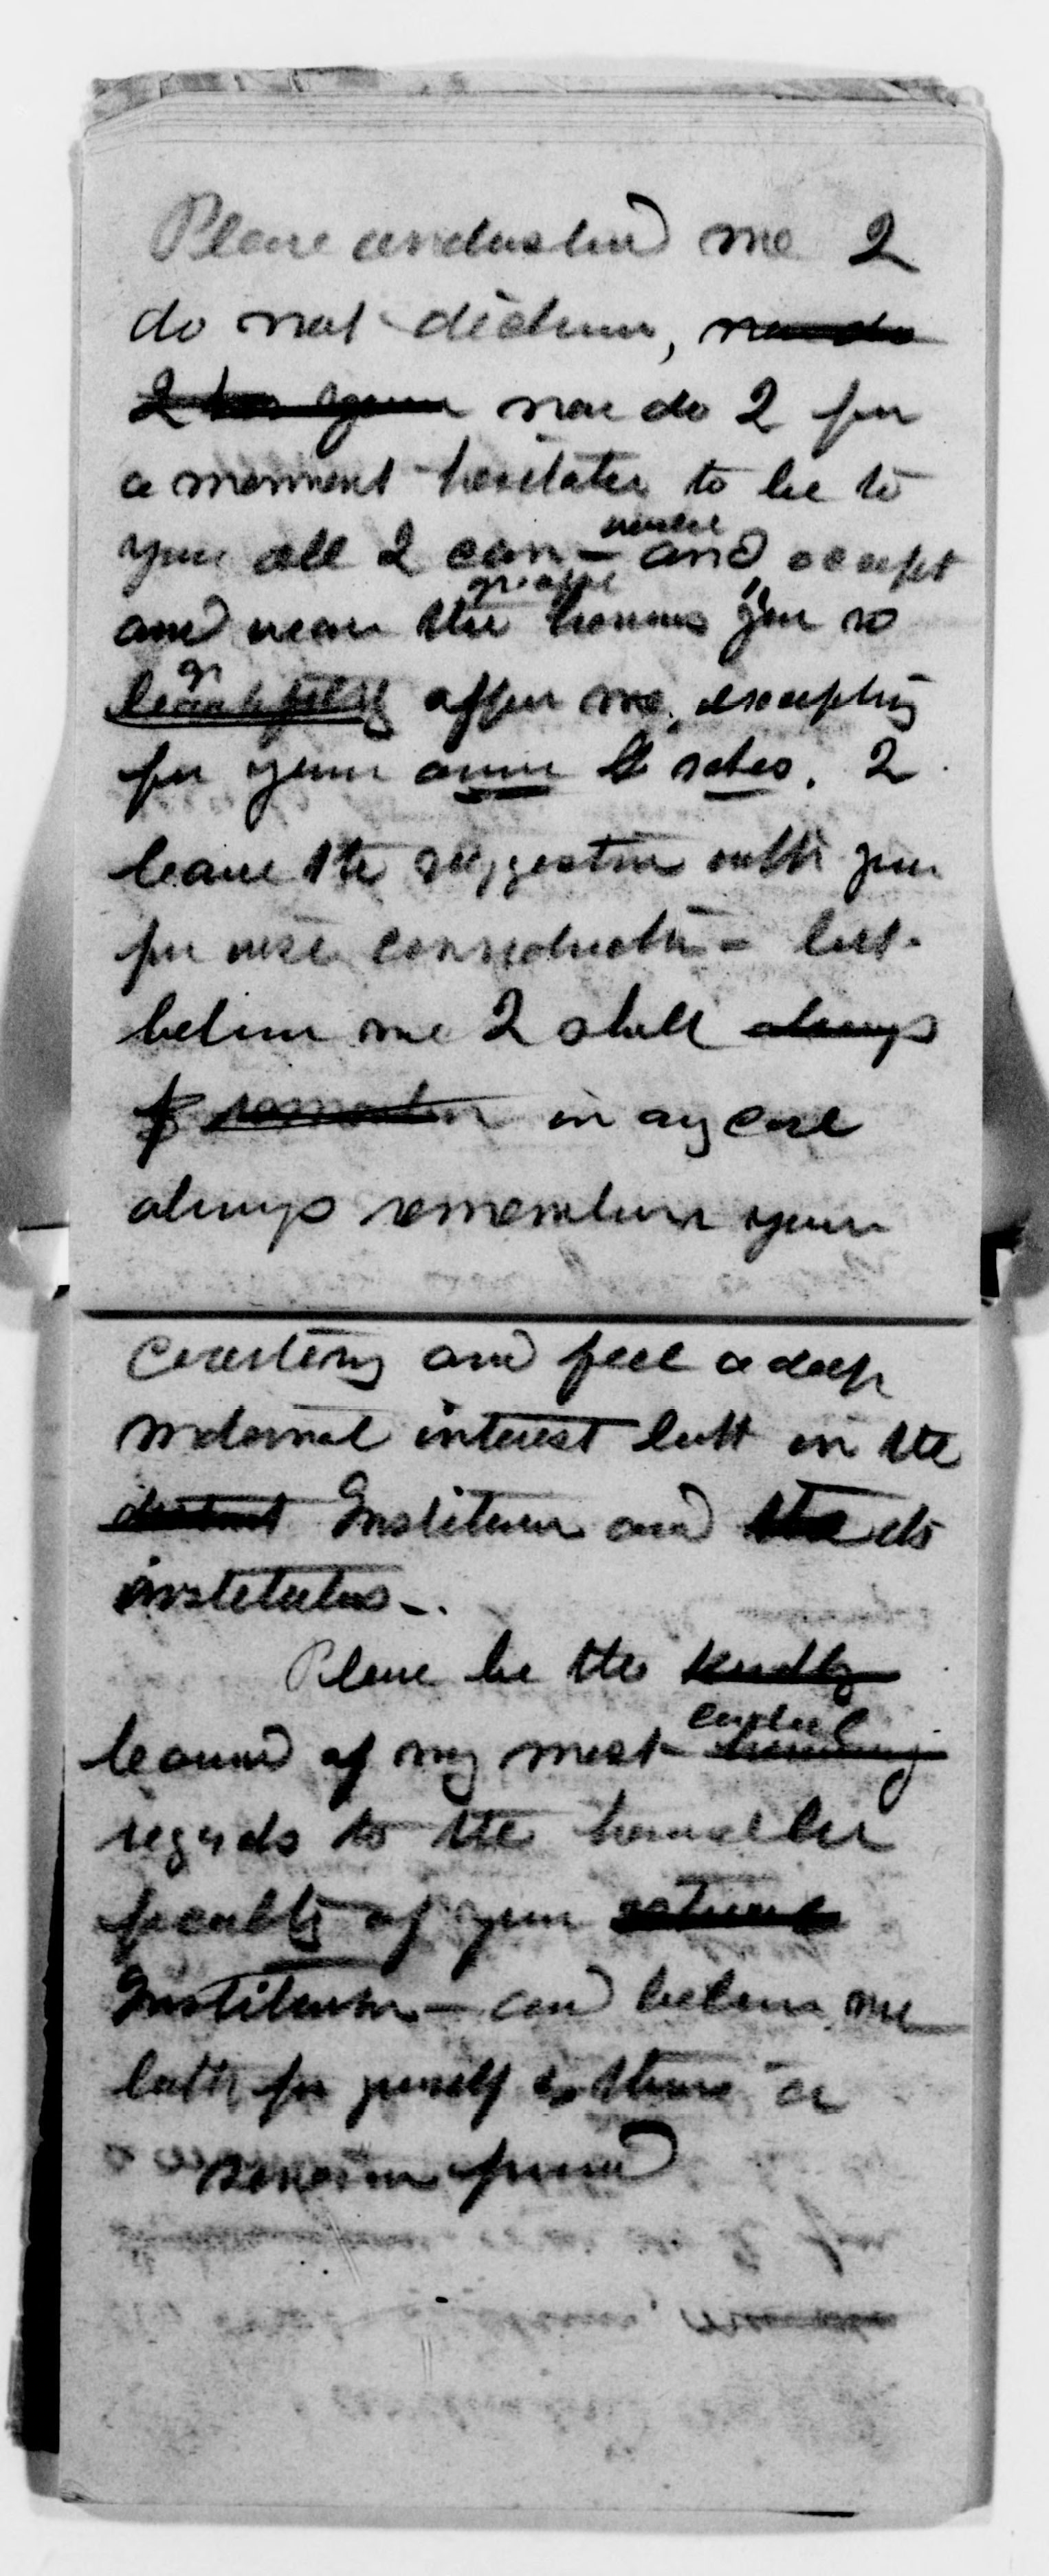 Please understand me I
do not decline, nor do
I nor do I for
a moment hesitate to be to
you all I can – and accept
and wear the honors you so
offer me, excepting
for your own sakes. I
leave the suggestion with you
for wise consideration – but
believe me I shall always
in any case
always remember your
courtesy and feel a deep
maternal interest both in the
Institution and the its
institutes –.
Please be the kindly
cordial
bearer of my most
regards to the honorable
faculty of your
Institution – and believe me
both for yourself & them a
sincere friend